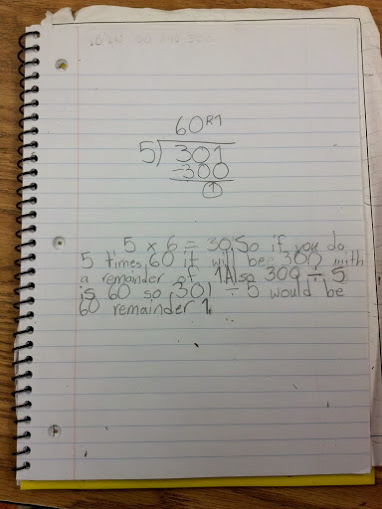 60R1
5)301
-300
1
5 x 6 = 30 So if you do
5 times 60 it will be 300 with
a remainder of 1 Also 300 ÷ 5
is 60 so 301 ÷ 5 would be
60 remainder 1.